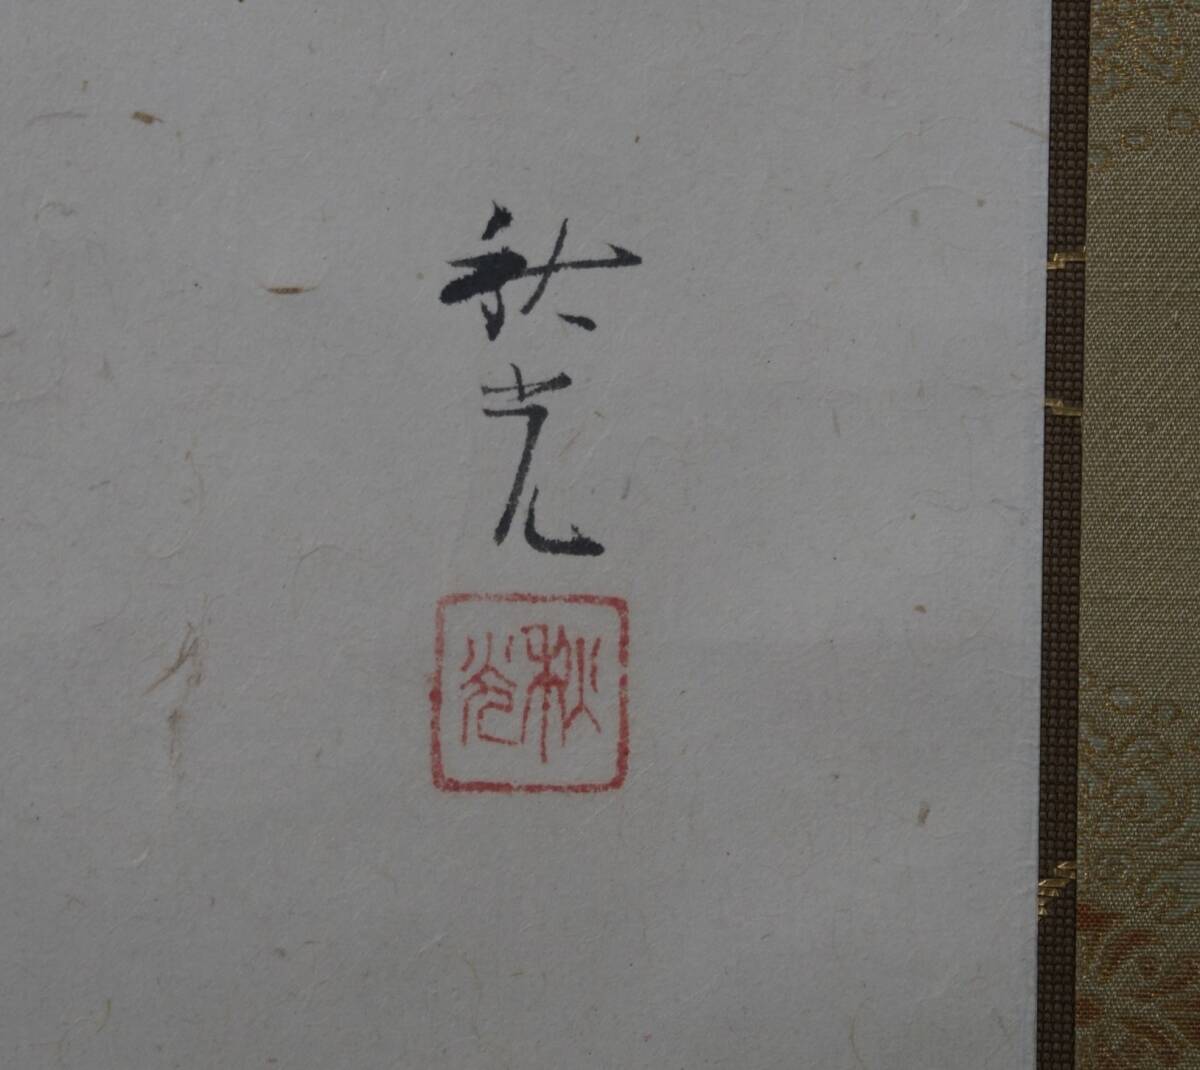 秋光
秋光